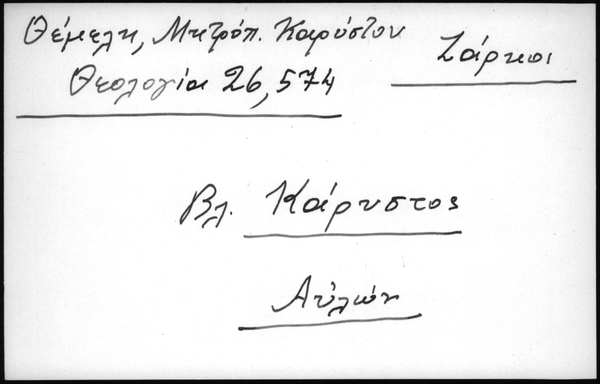 Θέμελη, Μητρόπ. Καρύστου
Θεολογία 26, 574
Ζάρκοι
Βλ. Κάρυστος
Αὐλών